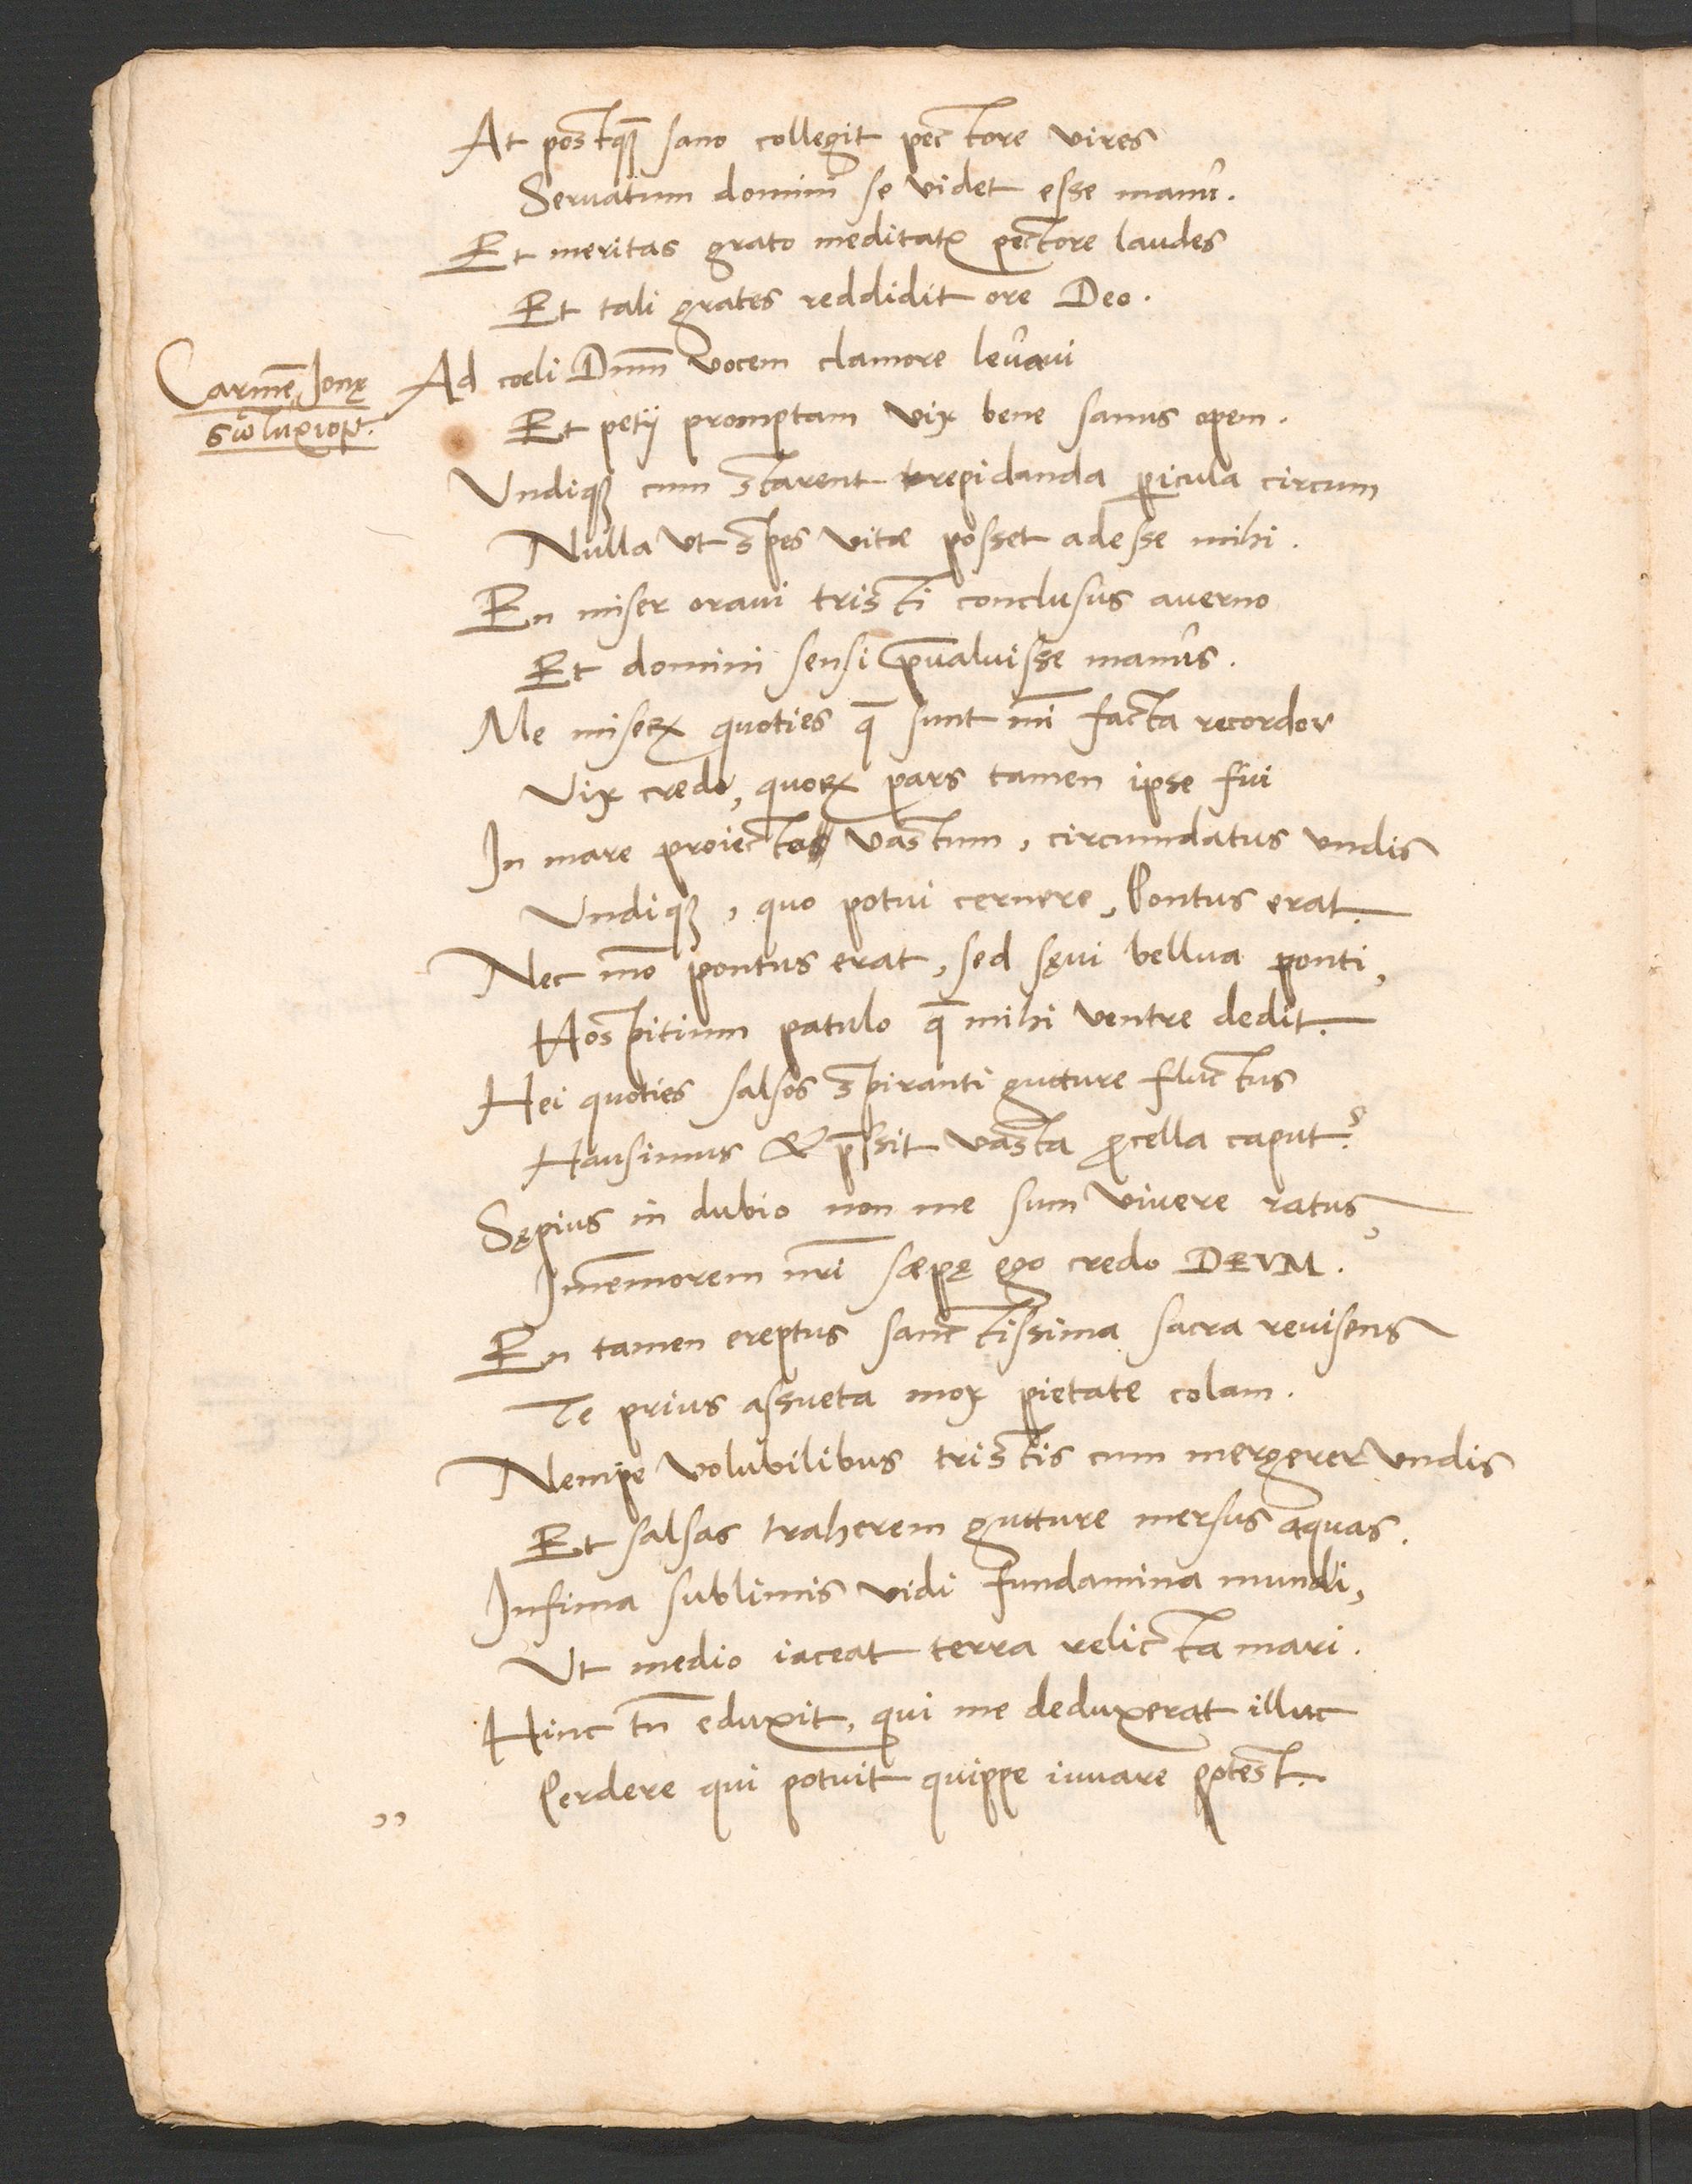 At postq̃ sano collegit pectore vires
Servatum domini se videt esse manu.
Et meritas grato meditatr pectore laudes
Et tali grates reddidit ore Deo.
Carmẽ Jonę
Ad coeli Dnm̄ vocem clamore levavi
Et petij promptam vix bene sanus opem.
Undiqꝫ cum starent trepidanda ꝑicula circum
Nulla ut spes vitæ posset adesse mihi.
En miser oravi tristi conclusus averno
Et domini sensi p̄valuisse manus.
Me miserꝝ quoties q̄ sunt mī facta recordor
Vix credo, quorꝝ pars tamen ipse fui
In mare proiectus vastum, circumdatus undis
Undiqꝫ, quo potui cernere, Pontus erat.
Nec mō pontus erat, sed sęvi bellua ponti,
Hospitium patulo q̄ mihi ventre dedit.
Hei quoties salsos spiranti gutture fluctus
Hausimus & p̄ssit vasta ꝓcella caput?
Sępius in dubio non me sum vivere ratus,
Im̄emorem nr̄i sæpę ego credo DEVM.
En tamen ereptus sanctissima sacra revisens
Te prius assueta mox pietate colam.
Nempe volubilibus tristis cum mergerer undis
Et salsas traherem gutture mersus aquas.
Infima sublimis vidi fundamina mundi,
Ut medio iaceat terra relicta mari.
Hinc tn̄ eduxit, qui me deduxerat illuc
„ Perdere qui potuit quippe iuvare potest.